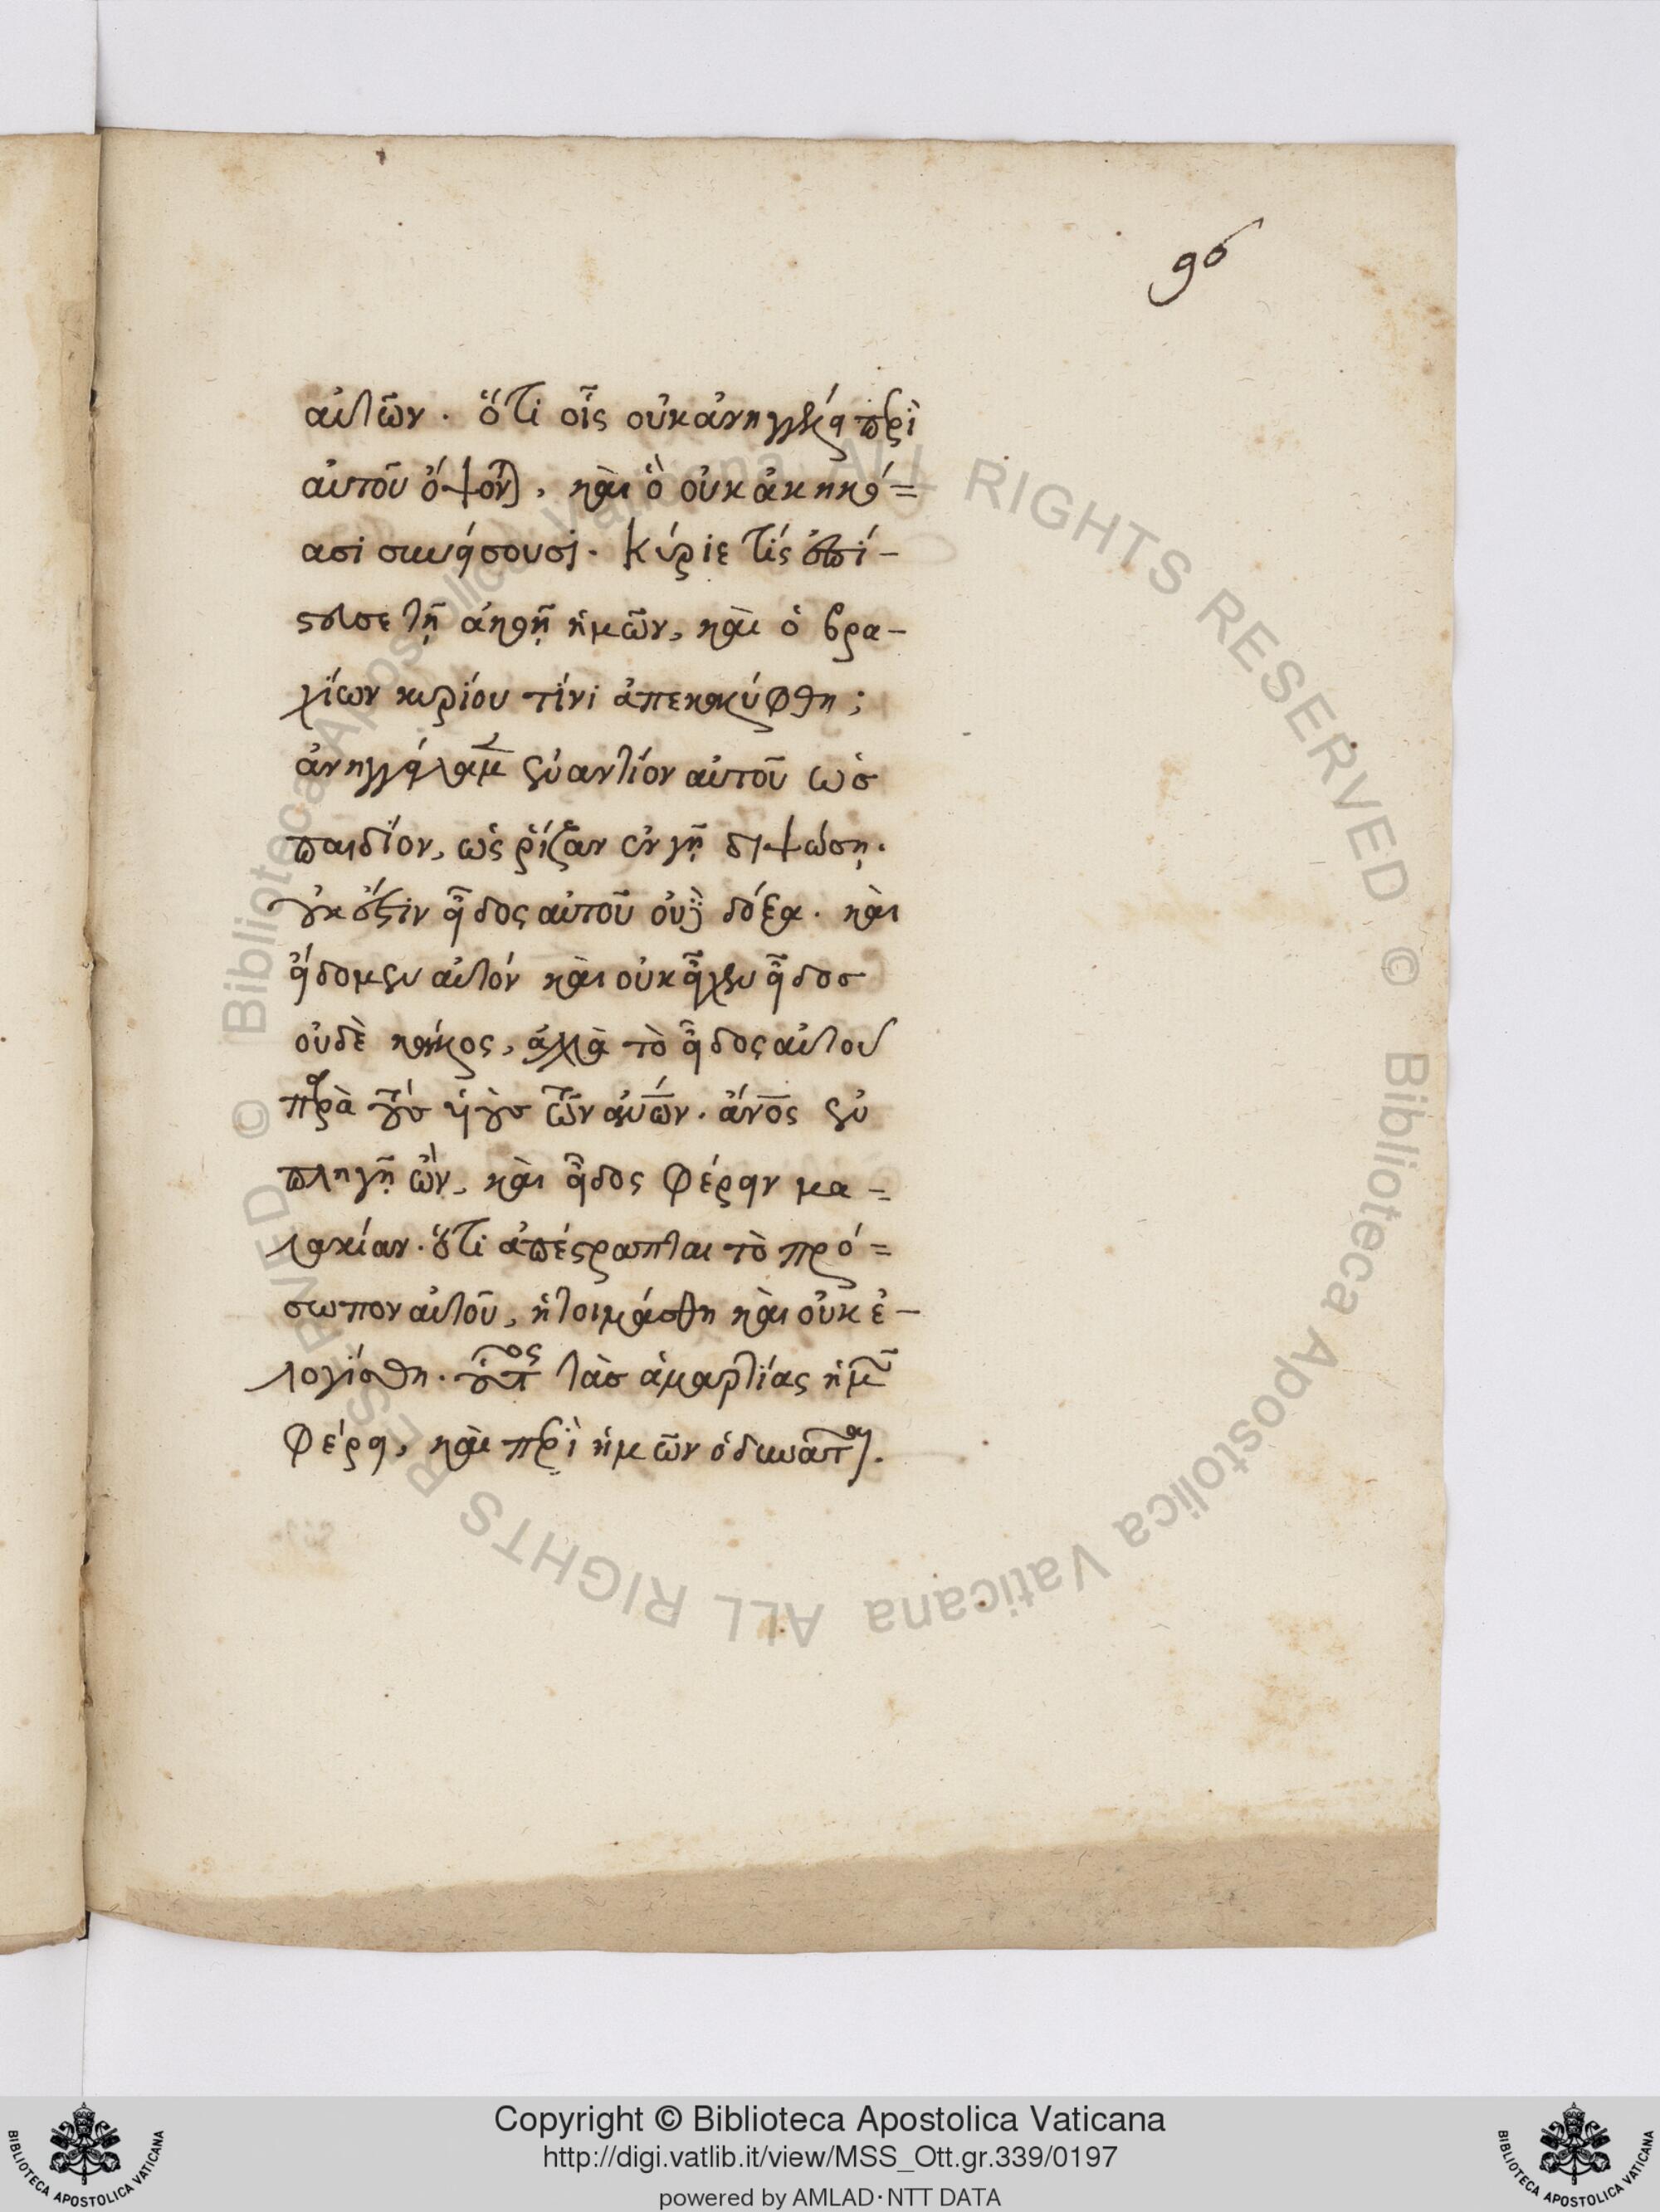 96
αὐτῶν. ὅτι οἷς οὐκ ἀνηγγέλη περὶ
αὐτοῦ ὄψονται, καὶ ὃ οὐκ ἀκηκό=
ασι συνήσουσι. Κύριε τίς ἐπί-
στευσε τῇ ἀκοῇ ἡμῶν, καὶ ὁ βρα-
χίων κυρίου τίνι ἀπεκαλύφθη;
ἀνηγγείλαμεν ἐναντίον αὐτοῦ ὡσ
παιδίον, ὡς ῥίζαν ἐν γῇ διψώσῃ.
οὐκ ἔστιν εἶδος αὐτοῦ οὐδὲ δόξα. καὶ
εἴδομεν αὐτόν καὶ οὐκ εἶχεν εἶδοσ
οὐδὲ κάλλος, ἀλλὰ τὸ εἶδος αὐτοῦ
παρὰ τοὺσ υἱοὺσ τῶν ἀνων. ἄνος ἐν
πληγῇ ὢν, καὶ εἰδὸς φέρειν μα=
λακίαν. ὅτι ἀπέστραπται τὸ πρό=
σωπον αὐτοῦ, ἠτοιμάσθη καὶ οὐκ ἐ-
λογίσθη. οὗτος τὰσ ἁμαρτίας ἡμῶν
φέρει, καὶ περὶ ἡμῶν ὀδυνᾶται.
Copyright © Biblioteca Apostolica Vaticana
http://digi.vatlib.it/view/MSS_Ott.gr.339/0197
powered by AMLAD·NTT DATA
BIBLIOTECA APOSTOLICA VATICANA
BIBLIOTECA APOSTOLICA VATICANA
© Biblioteca Apostolica Vaticana ALL RIGHTS RESERVED © Biblioteca Apostolica Vaticana ALL RIGHTS RESERVED